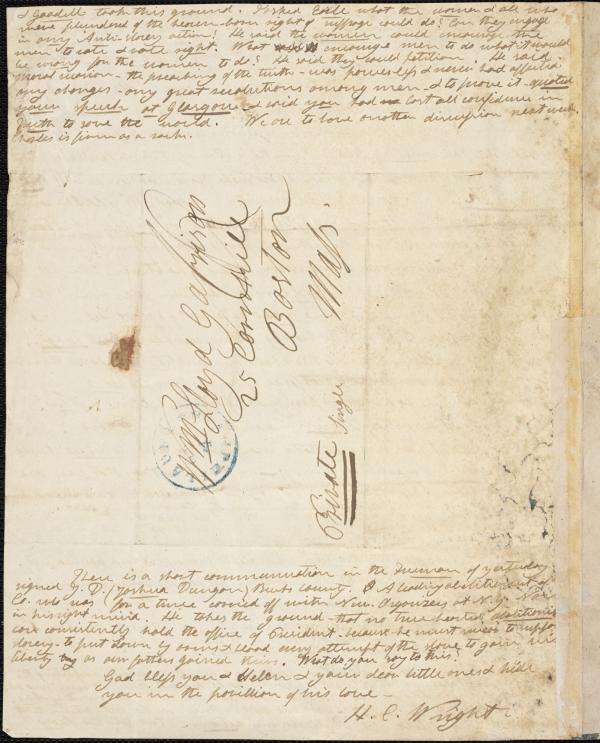 & Goodell took this ground. I asked Earle what the women & all who
were plundered of the heaven-born right of suffrage could do? Can they engage
in any Anti-Slavery action? He said the women could encourage the
men to vote & vote right. What encourage men to do what it would
be wrong for the women to do? He said they could petition. He said
moral suasion - the preaching of the truth - was powerless & never had effected
any changes - any great revolutions among men - & to prove it - quoted
your speech at Glasgow & said you had lost all confidence in
truth to save the world. We are to have another discussion next week.
Charles is firm as a rock.
Wm Lloyd Garrison
25 Cornhill
Boston
Mass.
Private Single
There is a short communication in the Freeman of yesterday
signed J. D. (Joshua Dungan) Bucks County. A leading abolitionist of
Co. who was for a time carried off with New Organizers at N.Y. Now
in his right mind. He takes the ground - that no true hearted abolitionist
can consistently hold the office of President. because he must swear to support
slavery - to put down by arms & blood any attempt of the slave to gain his
liberty as our fathers gained theirs. What do you say to this?
God bless you & Helen & your dear little ones & hide
you in the pavillion of his love -
H. C. Wright